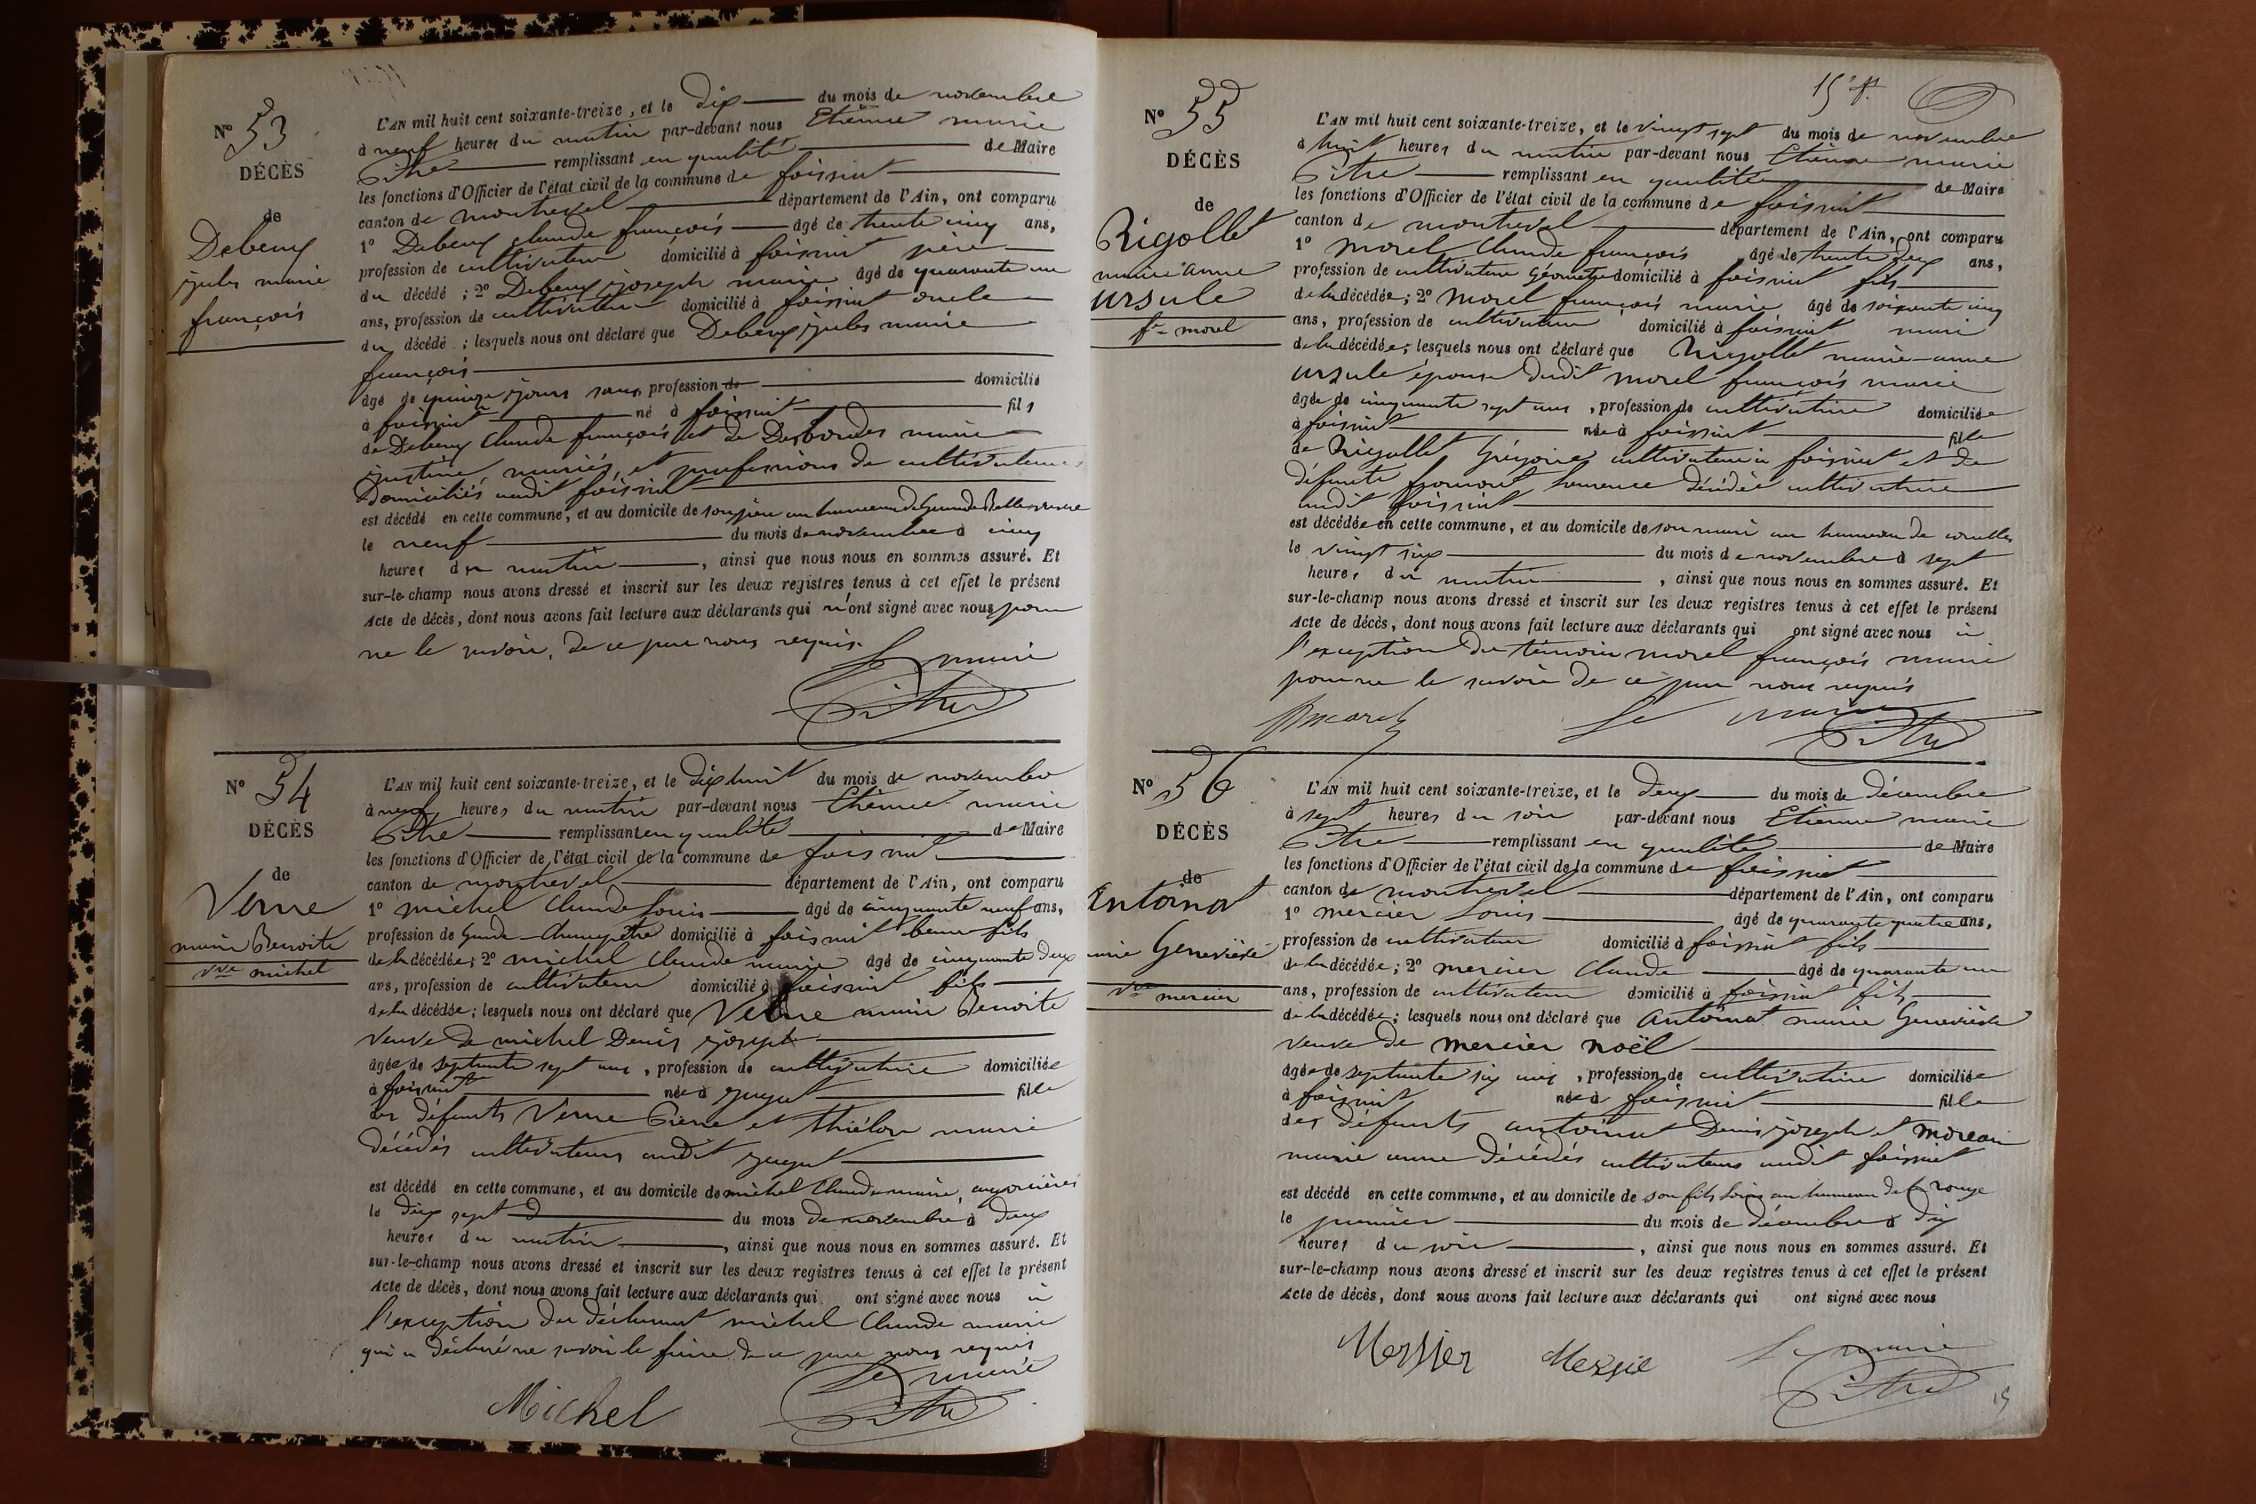 N° 53
DÉCÈS
de
Debeny
jules marie
françois
L'AN mil huit cent soixante-treize, et le dix du mois de novembre
à neuf heures du matin par-devant nous Etienne marie
Pitre remplissant en qualité de Maire
les fonctions d'Officier de l'état civil de la commune de foissiat
canton de montrevel département de l'Ain, ont comparu
1° Debeny claude françois âgé de trente cinq ans,
profession de cultivateur domicilié à foissiat père
du décédé ; 2° Debeny joseph marie âgé de quarante un
ans, profession de cultivateur domicilié à foissiat oncle
du décédé ; lesquels nous ont déclaré que Debeny jules marie
françois
âgé de quinze jours sans profession de domicilié
à foissiat né à foissiat fils
de Debeny Claude françois et de Desbordes marie
justine mariés, et professions de cultivateurs
domiciliés audit foissiat
est décédé en cette commune, et au domicile de son père au hameau de Grande
le neuf du mois de novembre à cinq
heures du matin , ainsi que nous nous en sommes assuré. Et
sur-le-champ nous avons dressé et inscrit sur les deux registres tenus à cet effet le présent
Acte de décès, dont nous avons fait lecture aux déclarants qui n'ont signé avec nous pour
ne le savoir, de ce par nous requis.
Le maire
Pitre
N° 54
DÉCÈS
de
Verne
marie Benoite
vve michel
L'AN mil huit cent soixante-treize, et le dix huit du mois de novembre
à neuf heures du matin par-devant nous Etienne marie
Pitre remplissant en qualité de Maire
les fonctions d'Officier de l'état civil de la commune de foissiat
canton de montrevel département de l'Ain, ont comparu
1° michel Claude Louis âgé de cinquante neuf ans,
profession de Garde-Champêtre domicilié à foissiat beau-fils
de la décédée ; 2° michel Claude marie âgé de cinquante deux
ans, profession de cultivateur domicilié à foissiat fils
de la décédée ; lesquels nous ont déclaré que Verne marie Benoite
veuve de michel Denis joseph
âgée de septante sept ans, profession de cultivatrice domiciliée
à foissiat née à jayat fille
des défunts Verne Pierre et marie
décédés cultivateurs audit jayat
est décédé en cette commune, et au domicile de michel Claude marie,
le dix sept du mois de novembre à deux
heures du matin , ainsi que nous nous en sommes assuré. Et
sur-le-champ nous avons dressé et inscrit sur les deux registres tenus à cet effet le présent
Acte de décès, dont nous avons fait lecture aux déclarants qui ont signé avec nous à
l'exception du déclarant michel Claude marie
qui a déclaré ne savoir le faire de ce par nous requis
Le maire
Michel
Pitre
15e f.
N° 55
DÉCÈS
de
Rigollet
marie anne
ursule
fe morel
L'AN mil huit cent soixante-treize, et le vingt sept du mois de novembre
à huit heures du matin par-devant nous Etienne marie
Pitre remplissant en qualité de Maire
les fonctions d'Officier de l'état civil de la commune de foissiat
canton de montrevel département de l'Ain, ont comparu
1° morel Claude françois âgé de trente deux ans,
profession de cultivateur Géomètre domicilié à foissiat fils
de la décédée ; 2° morel françois marie âgé de soixante cinq
ans, profession de cultivateur domicilié à foissiat mari
de la décédée ; lesquels nous ont déclaré que Rigollet marie-anne
ursule épouse dudit morel françois marie
âgée de cinquante sept ans, profession de cultivatrice domiciliée
à foissiat née à foissiat fille
de Rigollet Grégoire cultivateur à foissiat et de
défunte fromont Laurence décédée cultivatrice
audit foissiat
est décédée en cette commune, et au domicile de son mari au hameau de
le vingt six du mois de novembre à sept
heures du matin , ainsi que nous nous en sommes assuré. Et
sur-le-champ nous avons dressé et inscrit sur les deux registres tenus à cet effet le présent
Acte de décès, dont nous avons fait lecture aux déclarants qui ont signé avec nous à
l'exception du témoin morel françois marie
pour ne le savoir de ce par nous requis
Morel Le maire
Pitre
N° 56
DÉCÈS
de
Antoinat
marie Geneviève
vve mercier
L'AN mil huit cent soixante-treize, et le deux du mois de décembre
à sept heures du soir par-devant nous Etienne marie
Pitre remplissant en qualité de Maire
les fonctions d'Officier de l'état civil de la commune de foissiat
canton de montrevel département de l'Ain, ont comparu
1° mercier Louis âgé de quarante quatre ans,
profession de cultivateur domicilié à foissiat fils
de la décédée ; 2° mercier Claude âgé de quarante un
ans, profession de cultivateur domicilié à foissiat fils
de la décédée ; lesquels nous ont déclaré que Antoinat marie Geneviève
veuve de mercier noël
âgée de septante six ans, profession de cultivatrice domiciliée
à foissiat née à foissiat fille
des défunts antoinat Denis joseph et moreau
marie anne décédés cultivateurs audit foissiat
est décédé en cette commune, et au domicile de son fils Louis au hameau de rouge
le premier du mois de décembre à dix
heures du soir , ainsi que nous nous en sommes assuré. Et
sur-le-champ nous avons dressé et inscrit sur les deux registres tenus à cet effet le présent
Acte de décès, dont nous avons fait lecture aux déclarants qui ont signé avec nous
Le maire
Pitre
15